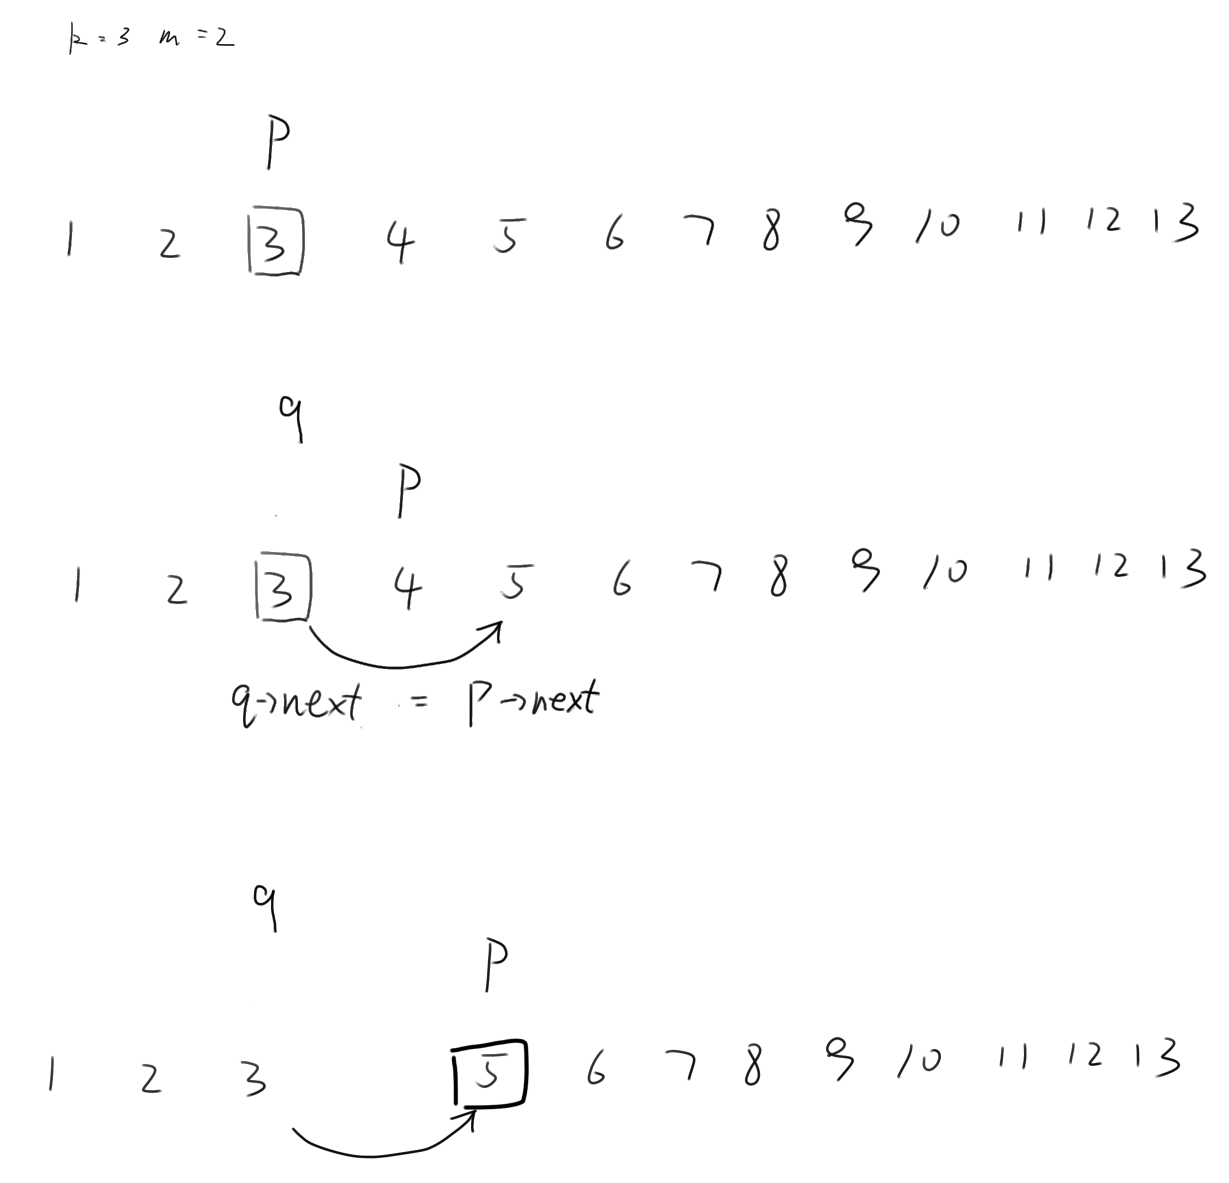 k = 3 m = 2
P
1 2 3 4 5 6 7 8 9 10 11 12 13
q
P
1 2 3 4 5 6 7 8 9 10 11 12 13
q→next = P→next
q
P
1 2 3 5 6 7 8 9 10 11 12 13